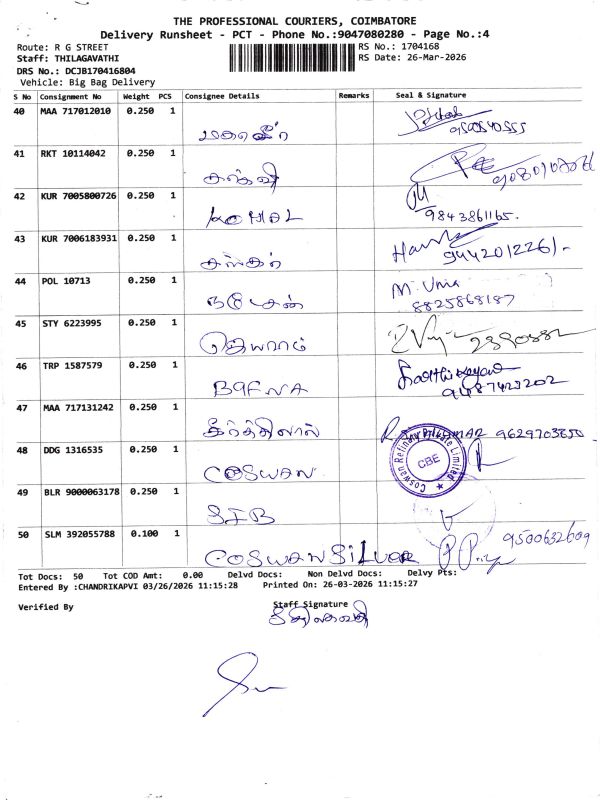 THE PROFESSIONAL COURIERS, COIMBATORE
Delivery Runsheet - PCT - Phone No.:9047080280 - Page No.:4
Route: R G STREET
RS No.: 1704168
Staff: THILAGAVATHI
RS Date: 26-Mar-2026
DRS No.: DCJB170416804
Vehicle: Big Bag Delivery
S No Consignment No Weight PCS Consignee Details Remarks Seal & Signature
40 MAA 717012010 0.250 1
41 RKT 10114042 0.250 1
42 KUR 7005800726 0.250 1 KOMAL
9843861165.
43 KUR 7006183931 0.250 1
9442012261-
44 POL 10713 0.250 1 நடேசன் M. Uma
8825868187
45 STY 6223995 0.250 1 ஜெயராம்
46 TRP 1587579 0.250 1
9487423202
47 MAA 717131242 0.250 1 கீர்த்திலால் 9629703850
48 DDG 1316535 0.250 1 COSWAN
Coswan Refinery Private Limited
CBE
49 BLR 9000063178 0.250 1 SIB
50 SLM 392055788 0.100 1 COSWAN SILVER 9500632609
Tot Docs: 50 Tot COD Amt: 0.00 Delvd Docs: Non Delvd Docs: Delvy Pts:
Entered By :CHANDRIKAPVI 03/26/2026 11:15:28 Printed On: 26-03-2026 11:15:27
Verified By
Staff Signature